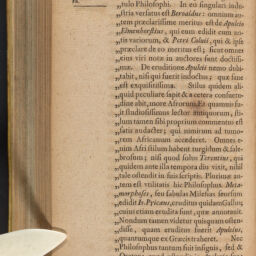 „tulo Philosophi. In eo singulari indu-
„stria versatus est Beroaldus: omnium au-
„tem præclarissime meritus est de Apuleio
„Elmenhorstius, qui eum edidit cum no-
„tis variorum, & Petri Colvii, qui & ipse
„præclare de eo meritus est; sicut omnes
„tius viri notæ in auctores sunt doctissi-
„mæ. De eruditione Apuleii nemo dubi-
„tabit, nisi qui fuerit indoctus; quæ sane
„est exquisitissima. Stilus quidem ali-
„quid peculiare sapit & a cetera consuetu-
„dine abit, more Afrorum. Et quamvis fu-
„it studiosissimus lector antiquorum, sti-
„lum tamen sibi proprium commentus est
„satis audacter; qui nimirum ad tumo-
„rem Africanum accederet. Omnes e-
„nim Afri stilum habent turgidum & sale-
„brosum; nisi quod solus Terentius, qui
„quidem ante illa tempora diu vixit, nihil
„tale ostendit in suis scriptis. Plurimæ au-
„tem est utilitatis hic Philosophus. Meta-
„morphoseos, seu fabulas Milesias seorsum
„edidit Is. Pricæus, eruditus quidam Gallus;
„cuius etiam erudita sunt, quæ annotavit.
„Nondum tamen videtur quisquam osten-
„disse, quam eruditus fuerit Apuleius,
„quantumque ex Græcis traheret. Nec
„Philosophus tantum fuit insignis, sed &